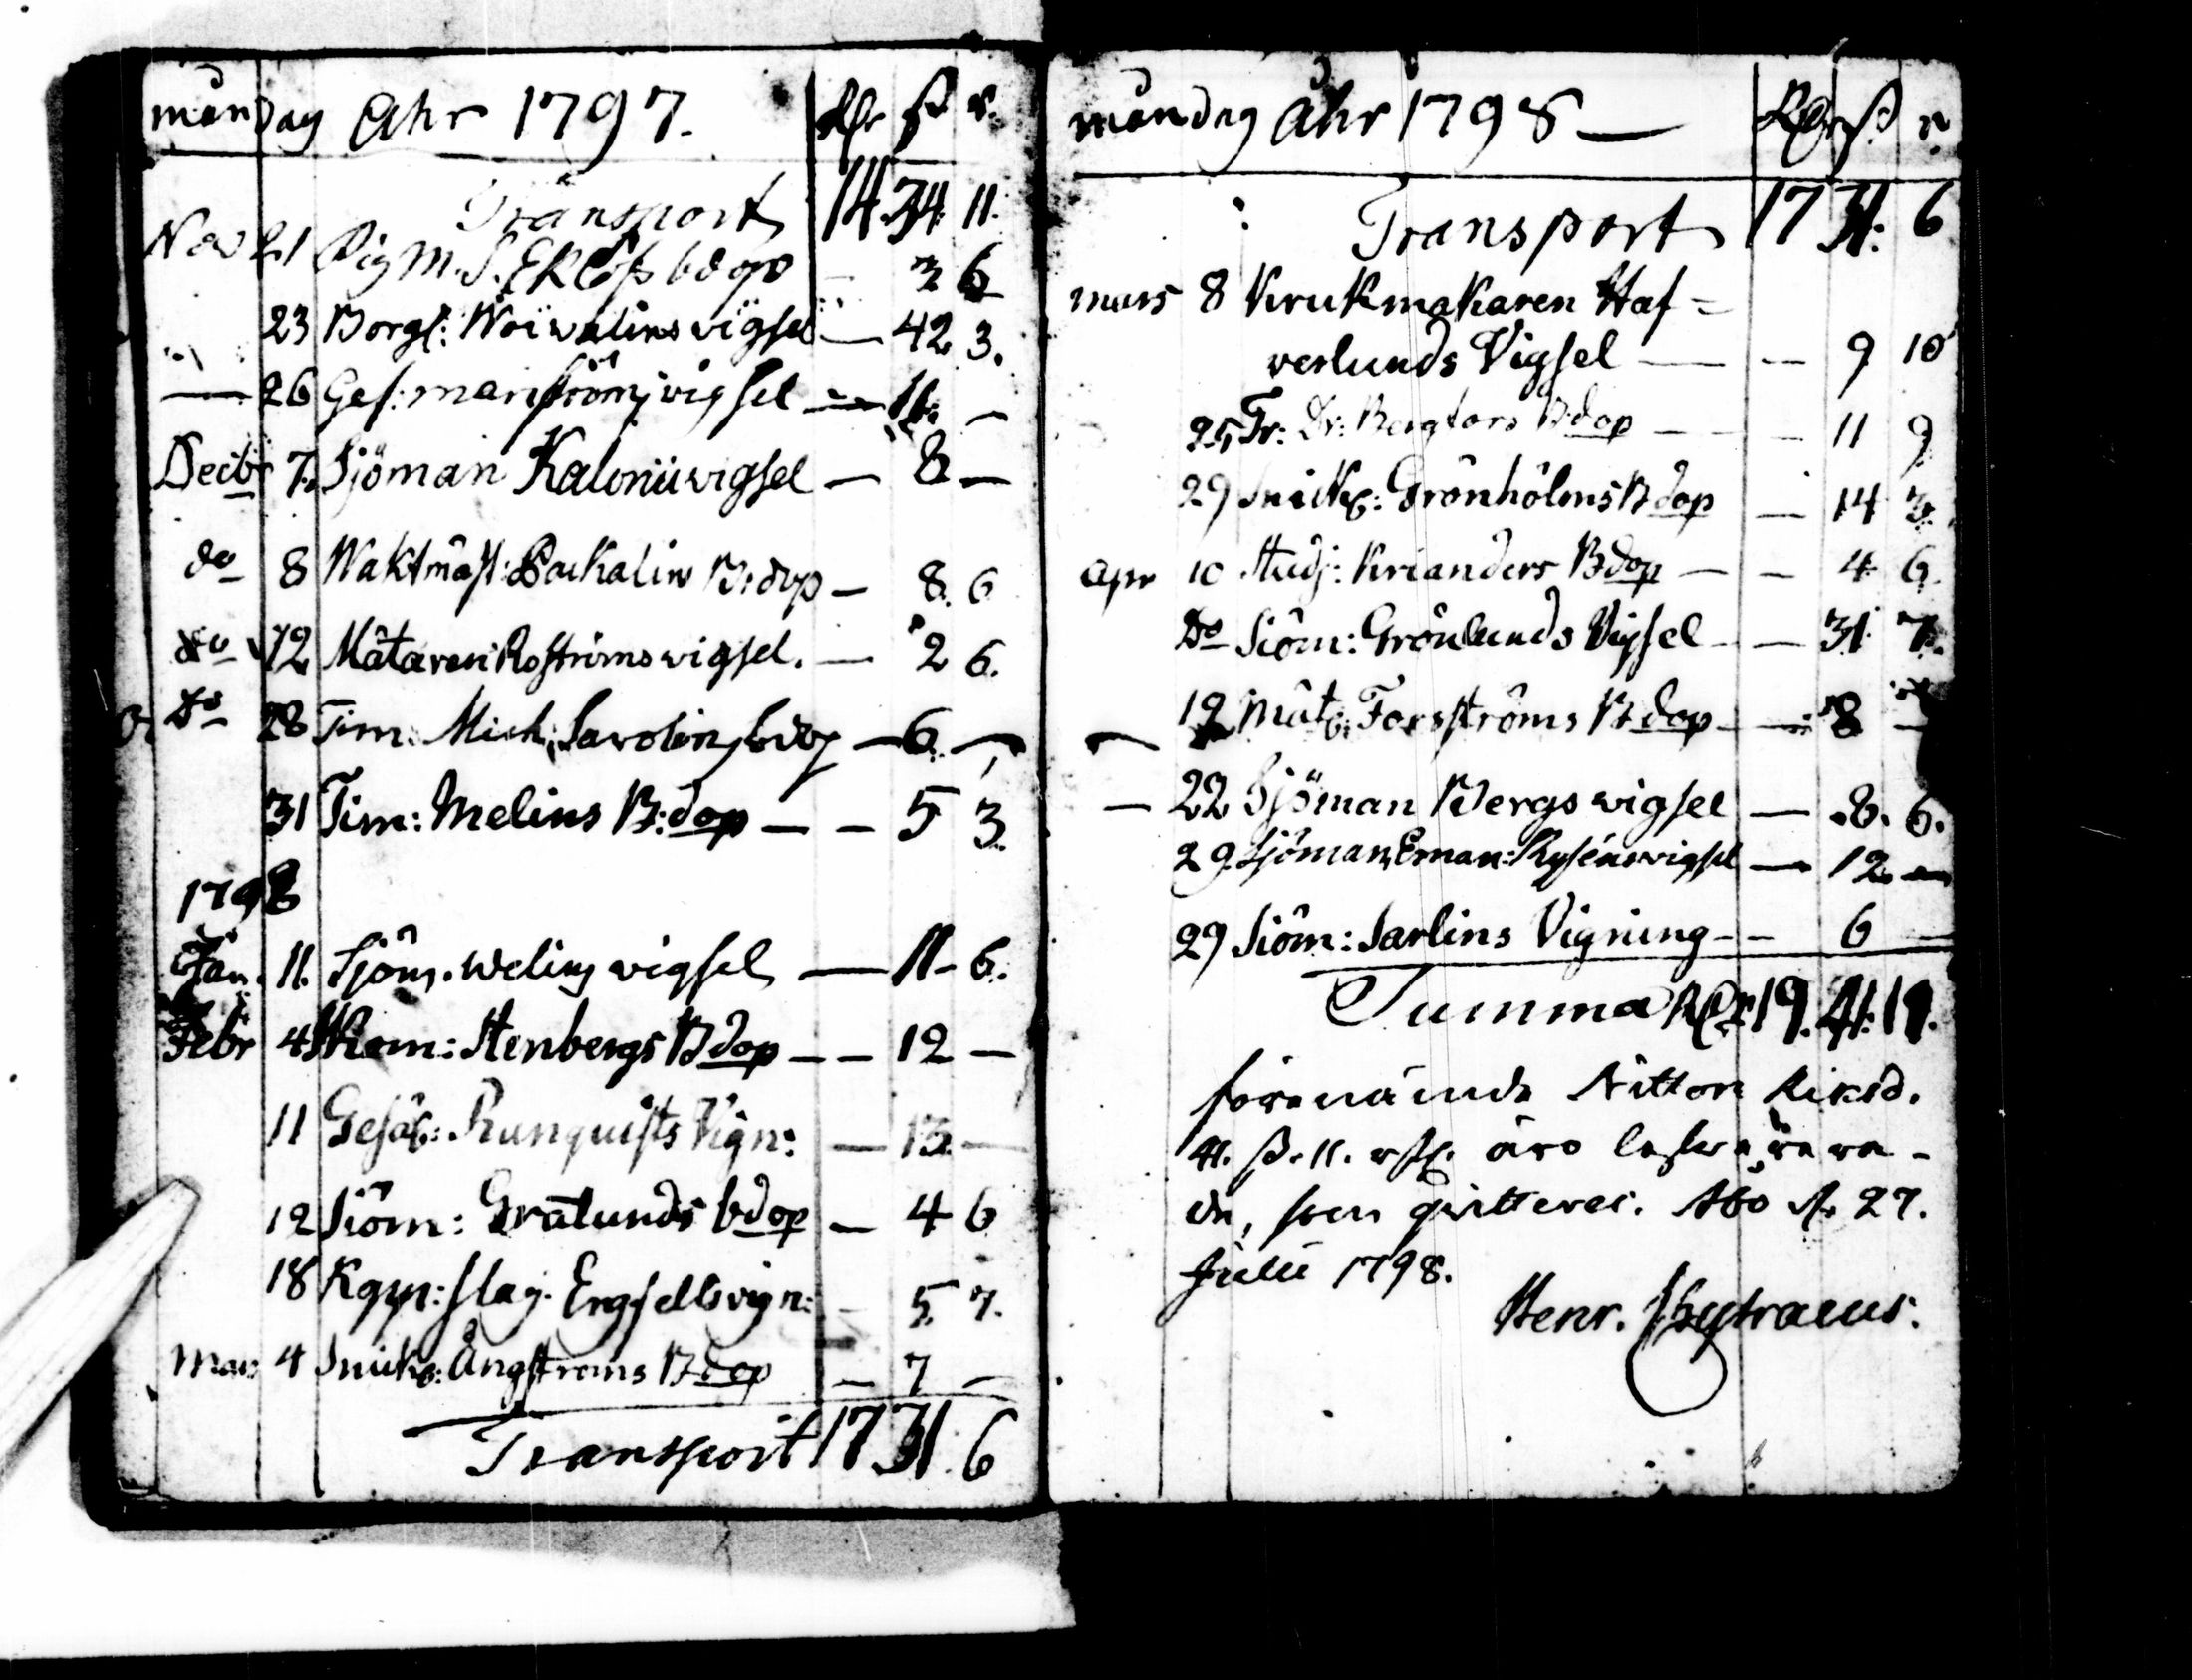 månd dag Åhr 1797. Rdr ß r.
Transport 14 34 11.
Nov 21 Pig M. S. Eklöfs bdop — 3 6
23 Borgs: Woiwalins vigsel — 42 3.
— 26 Ges: Marströms vigsel — 11. —
Decbr 7. Sjöman Kalonii vigsel — 8 —
do 8 Waktmäst: Backalins B:dop — 8. 6
do 12 Mätaren Roströms vigsel. — 2 6.
Do 28 Tim. Mich. Savolins bdop — 6. —
31 Tim: Melins B:dop — — 5 3.
1798
Jan. 11. Sjöm. Welins vigsel — 11 - 6.
Febr 4 Skom: Stenbergs Bdop — — 12 —
11 Gesäl: Runquists Vign: — 13. —
12 Siöm: Grälunds bdop — 4 6
18 Kapp: slag. vign: — 5. 7.
Mars 4 Snick: Ångströms Bdop — 7 —
Transport 17 31. 6
månd dag Åhr 1798 — Rdr ß r.
Transport 17 31: 6
mars 8 Krukmakaren Haf=
verlunds Vigsel — — 9 10
25 Fr: Dr: Bergfors Bdop — — 11 9
29 Snick: Grönholms Bdop — 14 3.
Apr 10 Stud: Krianders Bdop — — 4 6.
Do Siöm: Grönlunds Vigsel — — 31 7.
12 Mät: Forsströms Bdop — 8 —
— 22 Sjöman Bergs vigsel — 8. 6.
29. Sjöman Eman: Ryséns vigsel — 12 —
29 Siöm: Sarlins Vigning — — 6 —
Summa Rdr 19. 41: 11.
förenämnde Nitton Riksd.
41. ß. 11. rst. äro
de, som qvitteras. Åbo d. 27.
Julii 1798.
Henr. Chytraeus.